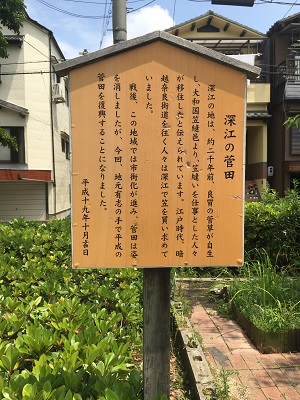 深江の菅田
深江の地は、約二千年前、良質の菅草が自生
し、大和国笠縫邑より、笠縫いを仕事とした人々
が移住したと伝えられています。江戸時代、暗
越奈良街道を往く人々は深江で笠を買い求めて
いました。
戦後、この地域では市街化が進み、菅田は姿
を消しましたが、今回、地元有志の手で平成の
菅田を復興することになりました。
平成十九年十月吉日